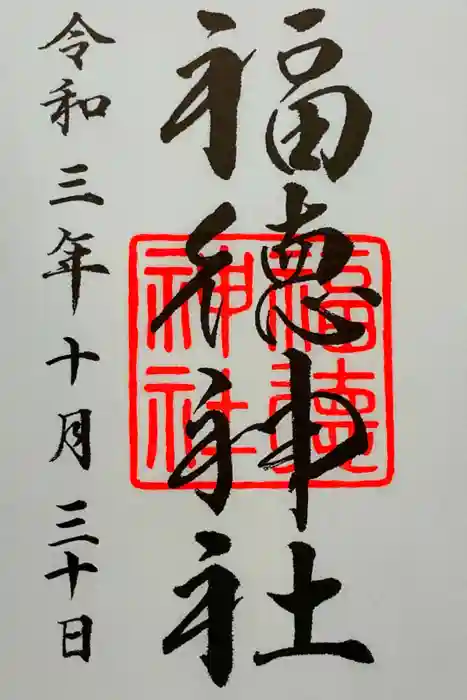 福徳神社
令和三年十月三十日
福徳神社